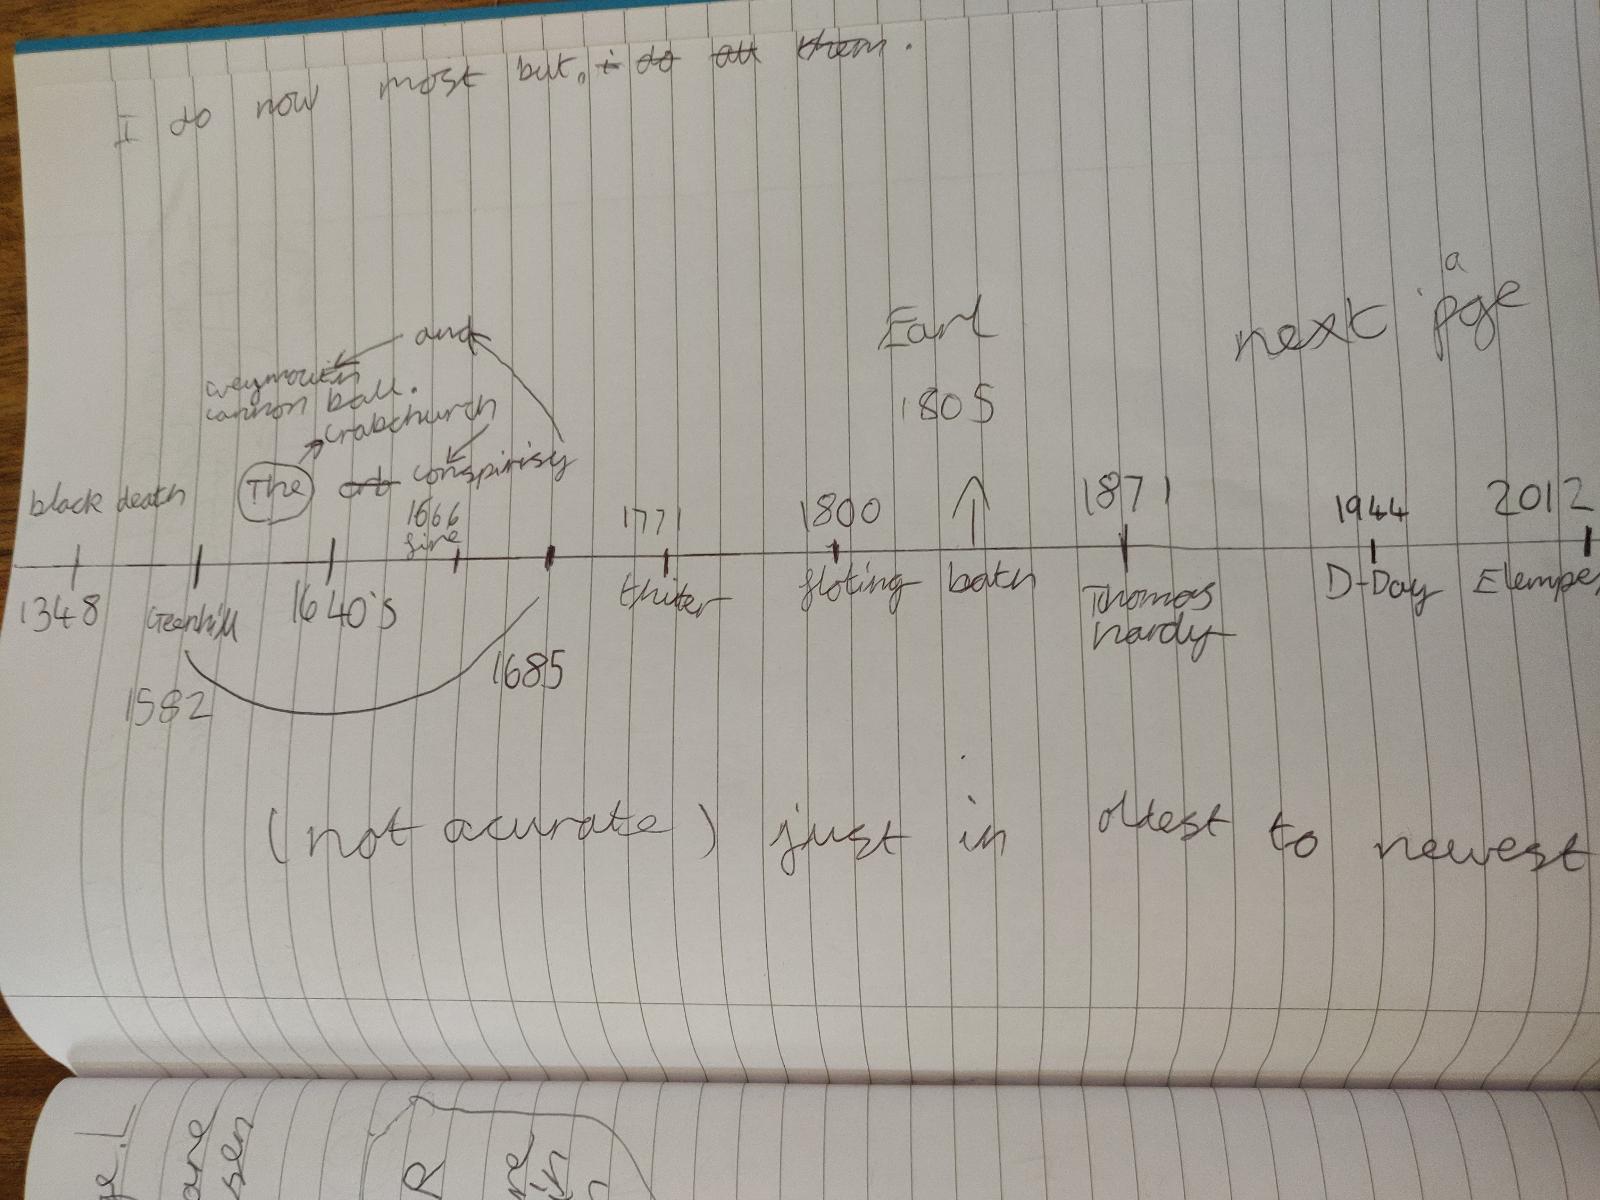 I do now most but. i do all them.
and
weymouth
cannon ball.
crabchurch
The conspirisy
black death
1666
fire
1771
1800
Earl
1805
1871
next page
1944
2012
1348
Geenhill
1640's
thiter
floting
bath
Thomas
hardy
D-Day
Elempe
1582
1685
(not acurate) just in oldest to newest
are
sen
R
in